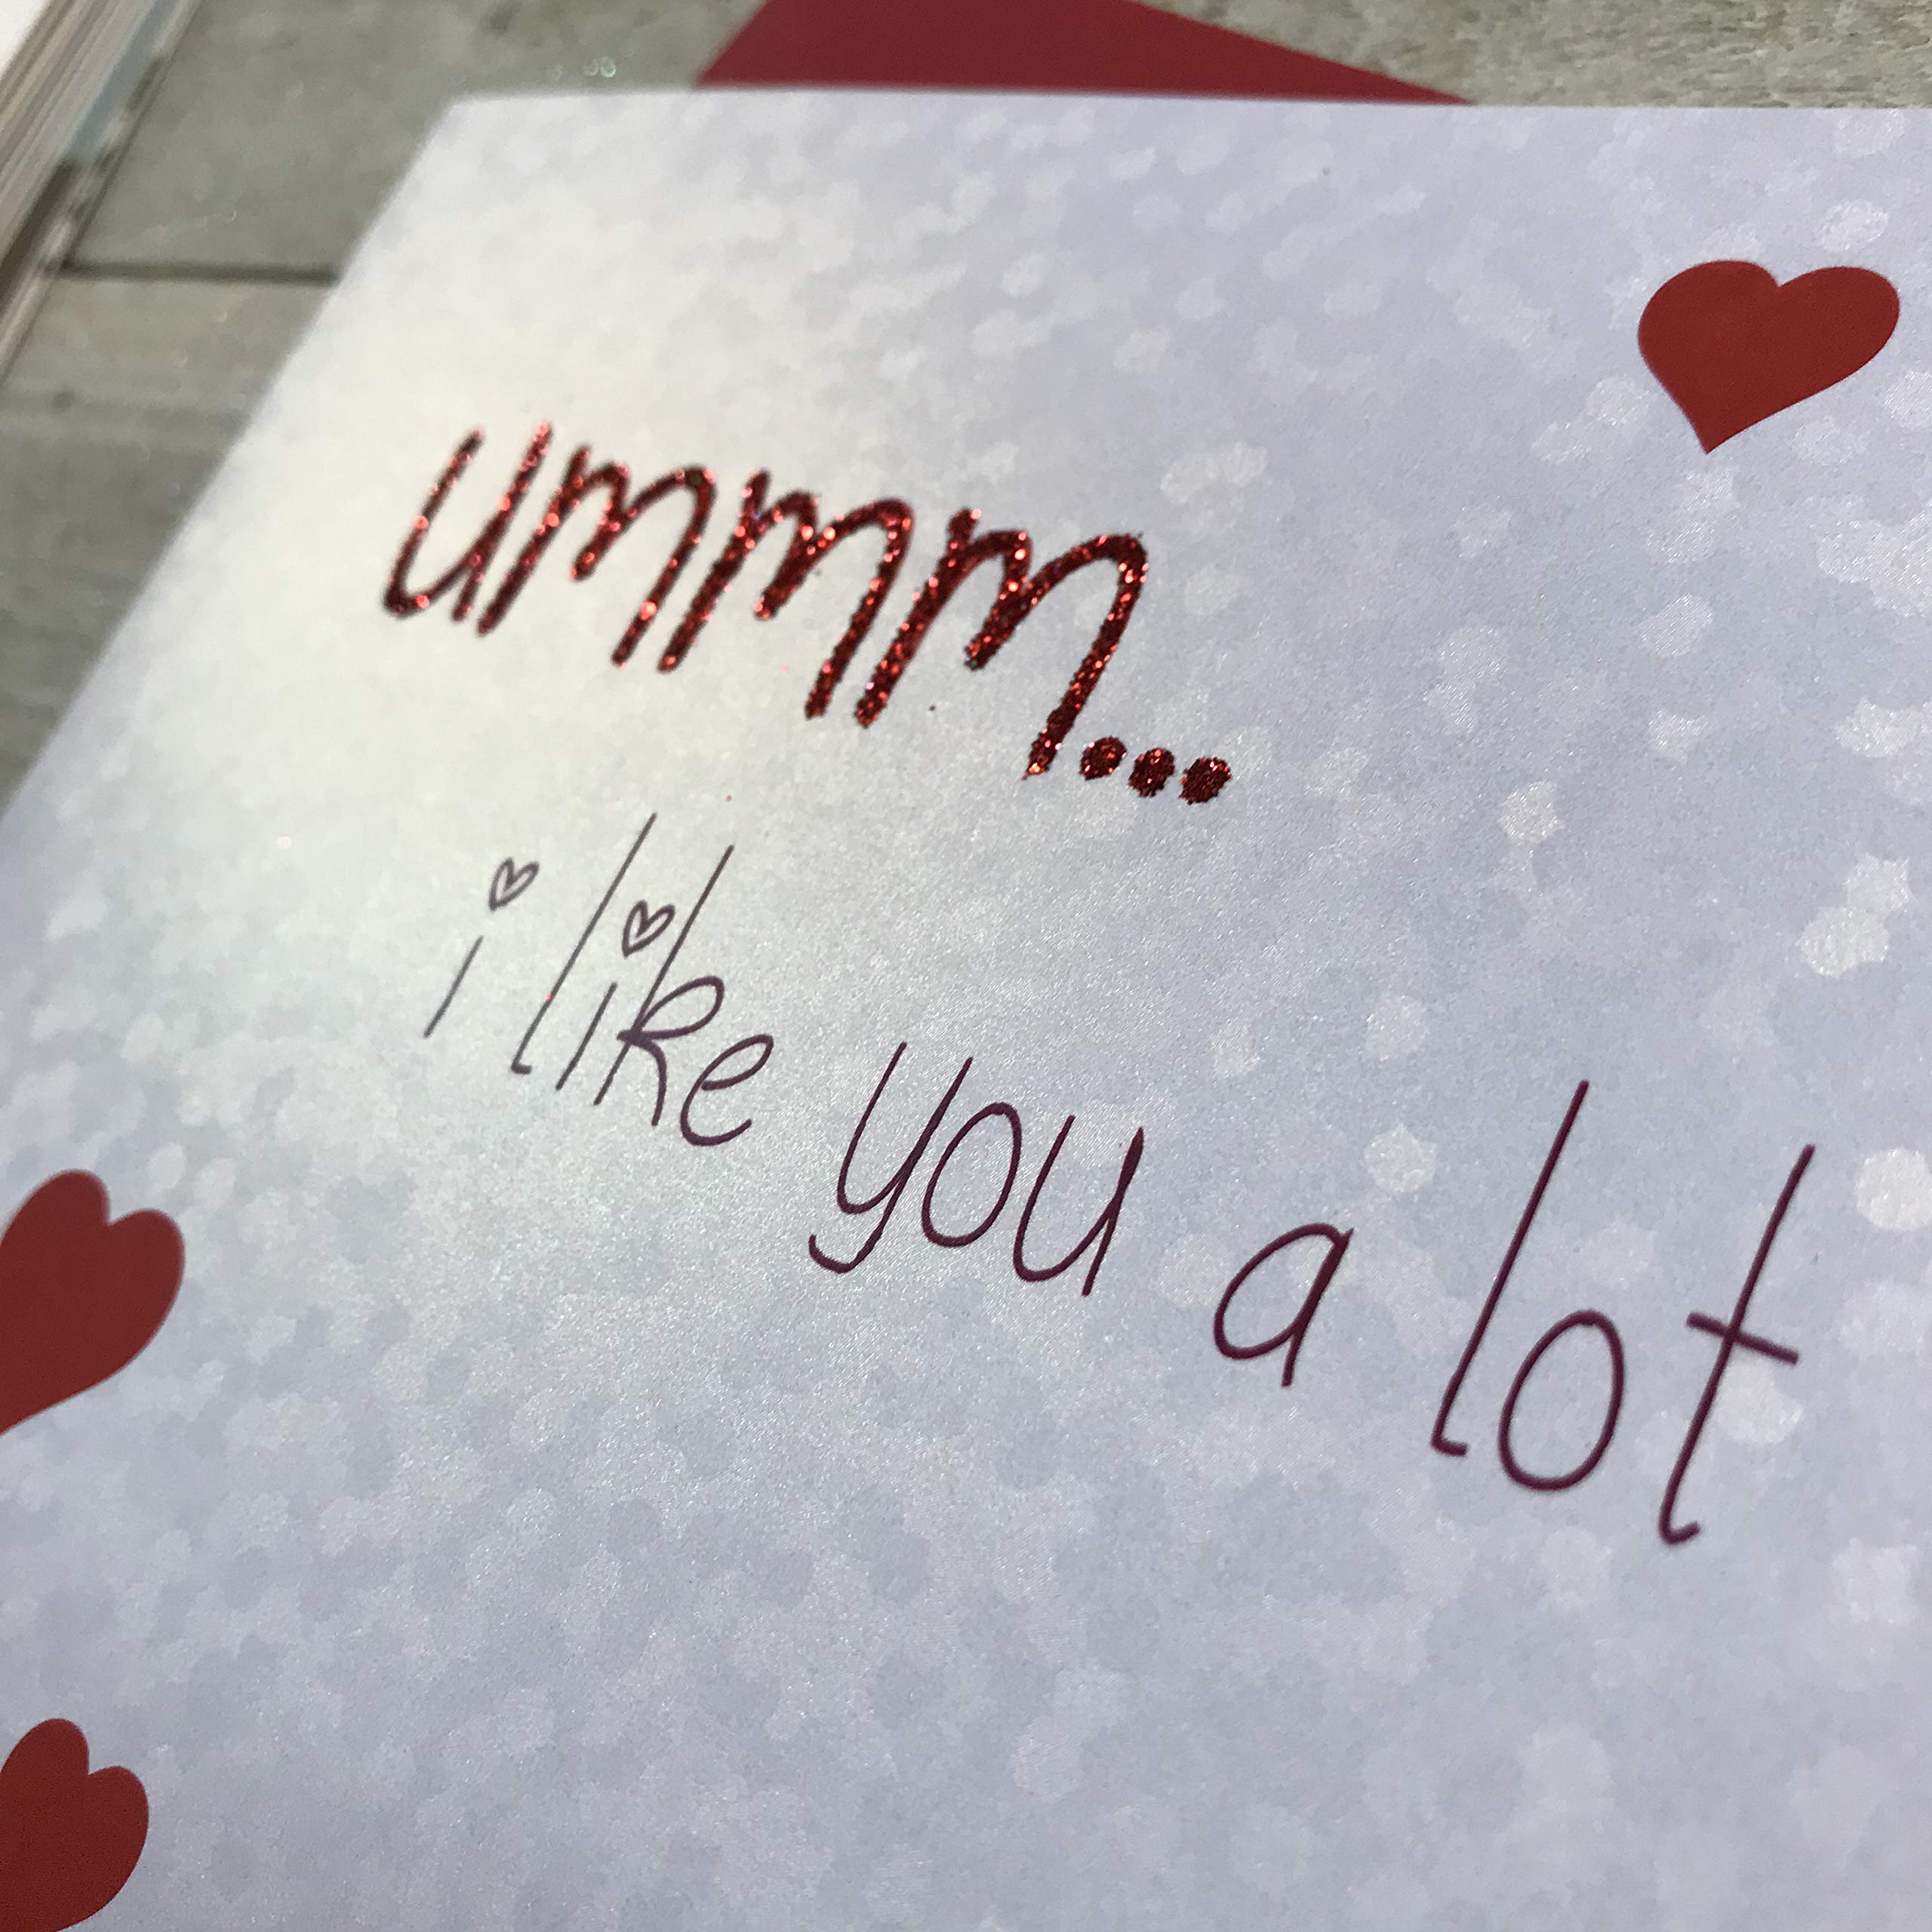 ummm...
i like you a lot